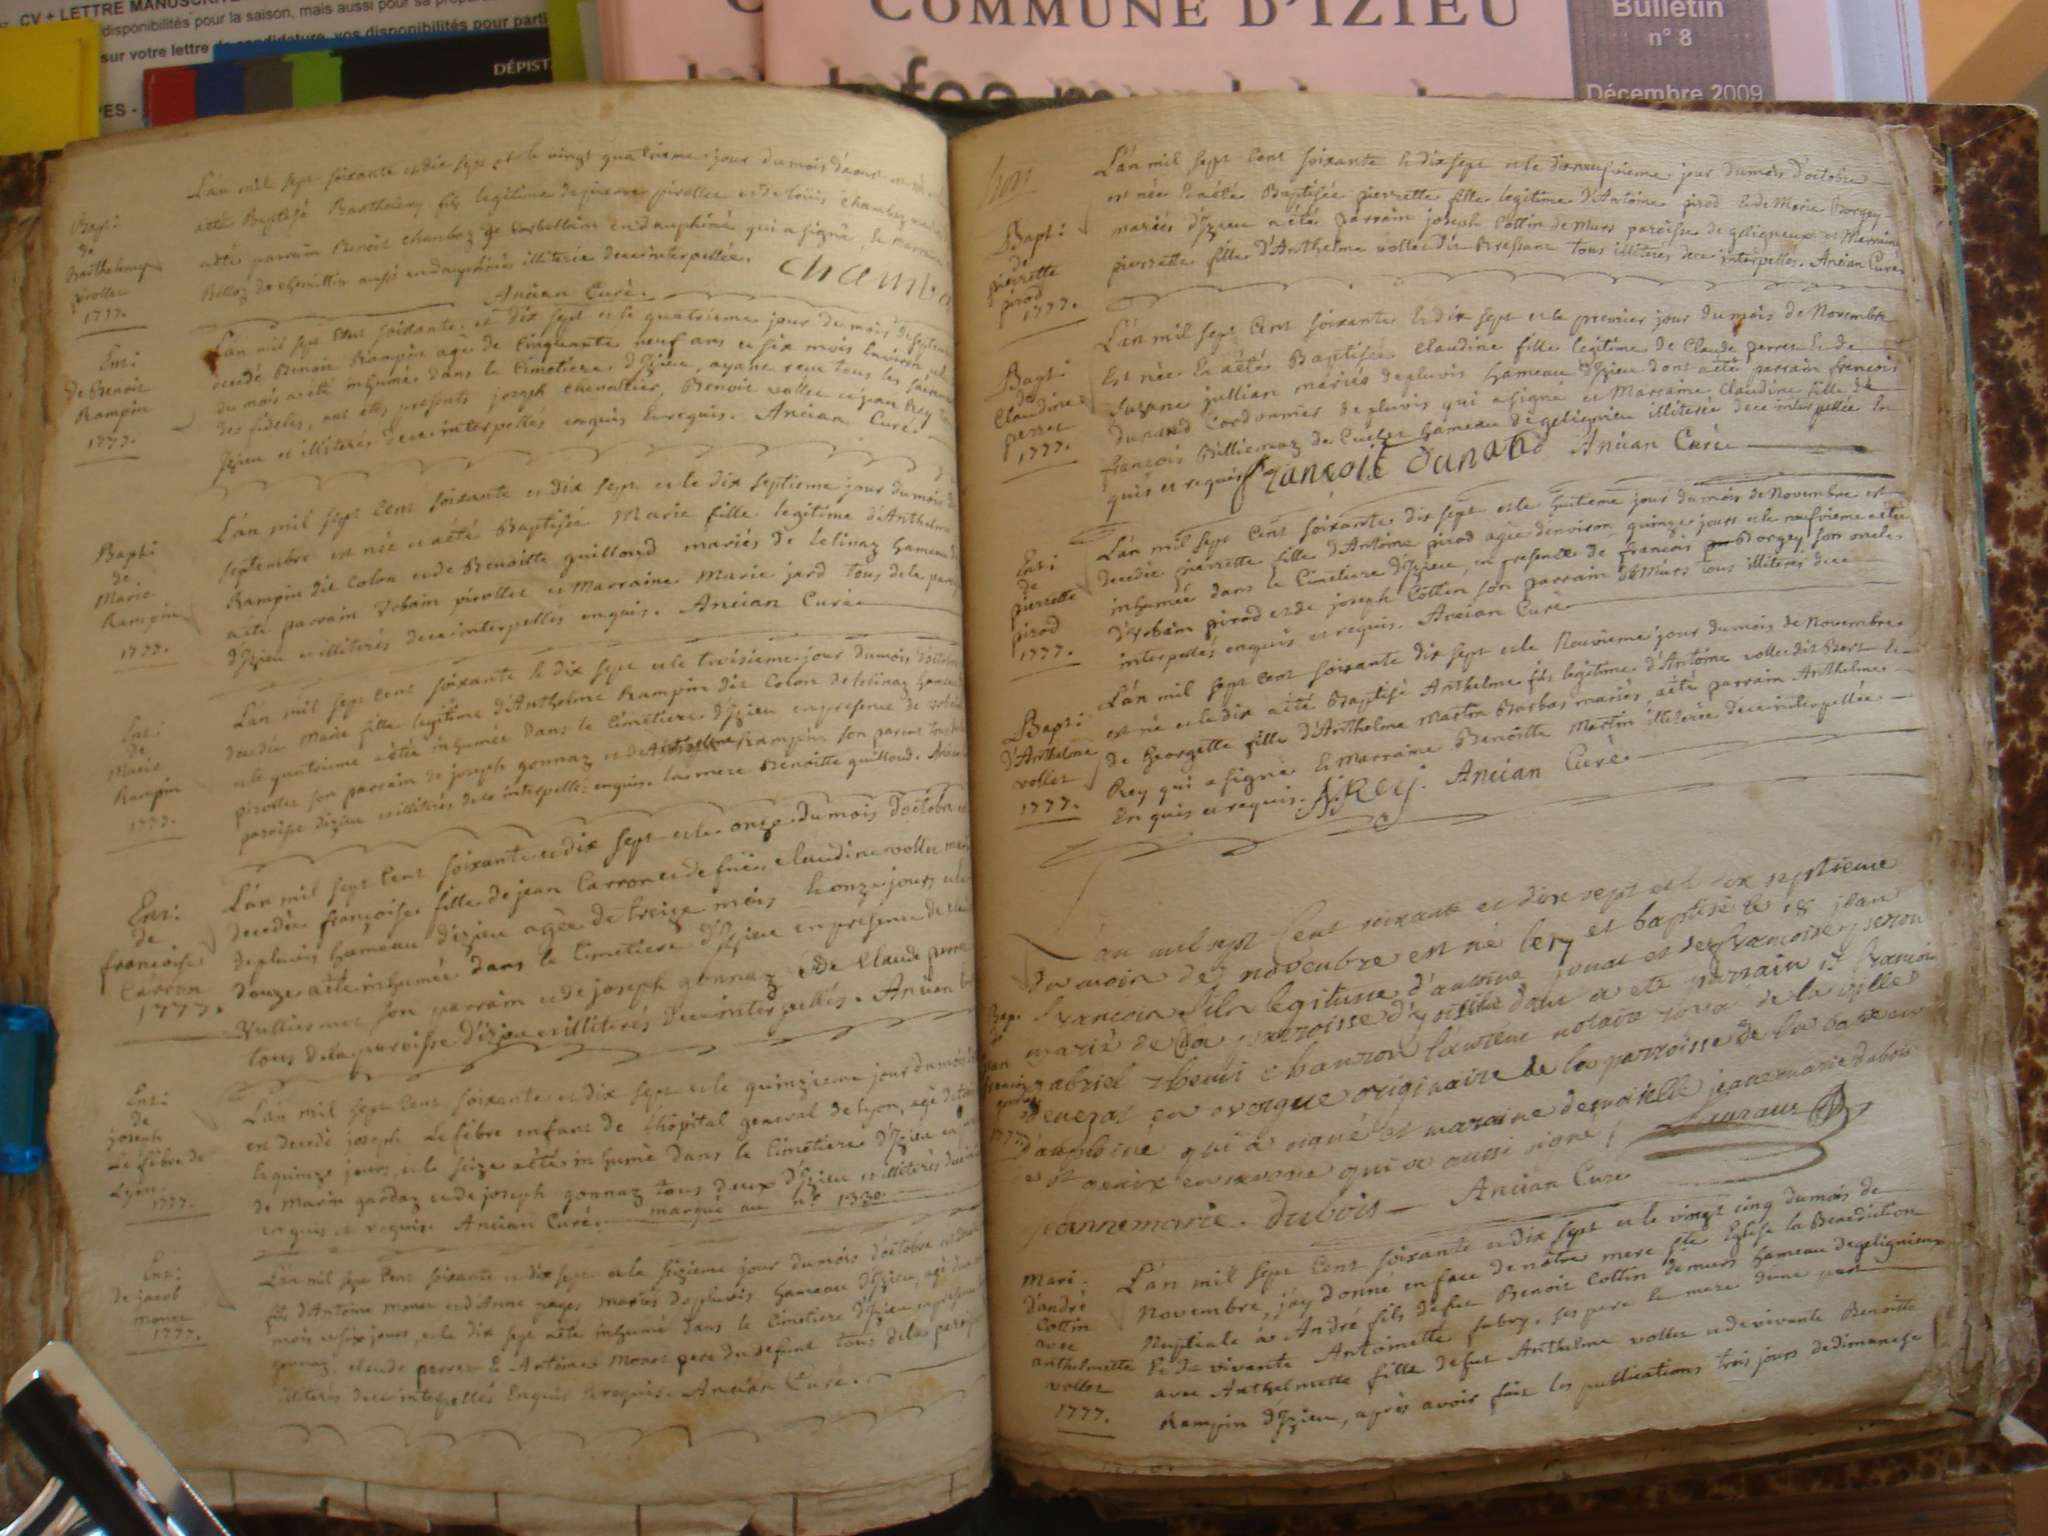 CV + LETTRE MANUSCRITE
disponibilités pour la saison, mais aussi pour sa
sur votre lettre de candidature, vos disponibilités pour parti
DÉPIST
COMMUNE D'IZIEU
Bulletin
n° 8
Décembre 2009
Bapt:
de
Barthelemy
pirollet
1777.
L'an mil sept soixante et dix sept et le vingt quatrieme jour du mois d'aout
aété Baptisé Barthelemy fils legitime de pierre pirollet et de louïse chambaz
aété parrain Benoit chambaz de Corbellain en dauphiné qui a signé, et marraine
Billoz de chimillin aussi en dauphiné illiterée de ce interpellée.
chamba
Ancian Curé.
Ent:
de Benoit
Rampin
1777.
L'an mil sept cent soixante et dix sept et le quatrieme jour du mois de septem
decedé Benoit Rampin agé de Cinquante neuf ans et six mois Environ, et le
du mois aété inhumé dans le Cimetiere d'Izieu, ayant reçu tous les sacrem
des fideles, ont etés presents joseph chevallier, Benoit vollet et jean Rey
Izieu et illiterés de ce interpellés enquis et requis. Ancian Curé.
Bapt:
de
Marie
Rampin
1777.
L'an mil sept Cent soixante et dix sept et le dix septieme jour du mois de
septembre est née et aété Baptisée Marie fille legitime d'Anthelme
Rampin dit Colon et de Benoitte guilloud mariés de Lelinaz hameau
aété parrain Urbain pirollet et Marraine Marie jard tous de la paroi
d'Izieu et illiterés de ce interpellés enquis. Ancian Curé.
Ent:
de
Marie
Rampin
1777.
L'an mil sept Cent soixante et dix sept et le troisieme jour du mois d'octobre
decedée Marie fille legitime d'Anthelme Rampin dit Colon de Lelinaz hameau
et le quatrieme aétée inhumée dans le Cimetiere d'Izieu en presence de
pirollet son parrain de joseph gonnaz et de Anthelme Rampin son parent tous
paroisse d'izieu et illiterés de ce interpellés enquis. la mere Benoitte guilloud. Ancian
Ent:
de
françoise
Carron
1777.
L'an mil sept Cent soixante et dix sept et le onze du mois d'octobre est
decedée françoise fille de jean Carron et de füe Claudine vollet
de pluvis hameau d'izieu agée de treize mois et onze jours et le
douze aété inhumée dans le Cimetiere d'Izieu en presence de
Vulliermet son parrain et de joseph gonnaz et de Claude perret
tous de la paroisse d'izieu et illiterés de ce interpellés. Ancian
Ent:
de
joseph
Le fébre de
Lyon
1777.
L'an mil sept Cent soixante et dix sept et le quinzieme jour du mois
est decedé joseph Le febre enfant de l'hôpital general de Lyon, agé de
et quinze jours, et le seize aété inhumé dans le Cimetiere d'Izieu en
de Marin gardaz et de joseph gonnaz tous deux d'Izieu et illiterés
enquis et requis. Ancian Curé. marqué au n° 1330.
Ent:
de jacob
monet
1777.
L'an mil sept Cent soixante et dix sept et le sizieme jour du mois d'octobre est
fils d'Antoine monet et d'Anne pages mariés de pluvis hameau d'Izieu, agé
mois et six jours, et le dix sept aété inhumé dans le Cimetiere d'Izieu en presence
gonnaz, claude perret et Antoine Monet pere du defunt tous de la paroisse
illiterés de ce interpellés Enquis et requis. Ancian Curé.
Bapt:
de
pierrette
pirod
1777.
L'an mil sept Cent soixante et dix sept et le dixneufvieme jour du mois d'octobre
est née et aété Baptisée pierrette fille legitime d'Antoine pirod et de Marie Borgey
mariés d'Izieu aété parrain joseph Cottin de Murs paroisse de geligneux et Marraine
pierrette fille d'Anthelme vollet dit Bressan tous illiterés de ce interpellés. Ancian Curé
Bapt:
de
Claudine
perret
1777.
L'an mil sept Cent soixante et dix sept et le premier jour du mois de Novembre
Est née et aété Baptisée Claudine fille legitime de Claude perret et de
Suzane jullian mariés de pluvis hameau d'Izieu dont aété parrain françois
dunand Cordonnier de pluvis qui a signé et Marraine Claudine fille de
françois Billiemaz de Cuelet hameau de gelignieu illiterée de ce interpellée En
quis et requis. françois Dunand Ancian Curé
Ent:
de
pierrette
pirod
1777.
L'an mil sept Cent soixante dix sept et le huitieme jour du mois de Novembre est
decedée pierrette fille d'Antoine pirod agée d'environ quinze jours et le neufvieme aété
inhumée dans le Cimetiere d'Izieu, en presence de francois Borgey son oncle
d'Urbain pirod et de joseph Cottin son parrain de Murs tous illiterés de ce
interpellés enquis et requis. Ancian Curé
Bapt:
d'Anthelme
vollet
1777.
L'an mil sept Cent soixante dix sept et le Neuvieme jour du mois de Novembre
est né et le dix aété Baptisé Anthelme fils legitime d'Antoine vollet dit Bert et
de Georgette fille d'Anthelme Martin Barbas mariés aété parrain Anthelme
Rey qui a signé et Marraine Benoitte Martin illiterée de ce interpellée
Enquis et requis. A Rey. Ancian Curé.
Bap.
de
jean
françois
L'an mil sept Cent soixante et dix sept et le dix septieme
du mois de novembre est né le 17 et baptisé le 18 jean
françois fils legitime d'antoine et de françoise
marié de la parroisse d'yzieu dont a été parrain sr francois
gabriel notaire royal de la ville
originaire de la parroisse de la
dauphiné qui a signé et maraine demoiselle jeannemarie dubois
de st genix en savoie qui a aussi signé
jeannemarie. dubois Ancian Curé
Mari.
d'andré
Cottin
avec
anthelmette
vollet
1777.
L'an mil sept Cent soixante et dix sept et le vingt cinq du mois de
Novembre, j'ay donné en face de nôtre mere ste Eglise la Benediction
Nuptiale à André fils de feu Benoit Cottin de murs hameau de gelignieux
Et de vivante Antoinette fabry, ses pere et mere d'une part
avec Anthelmette fille de feu Anthelme vollet et de vivante Benoitte
Rampin d'Izieu, après avoir fait les publications trois jours de dimanche